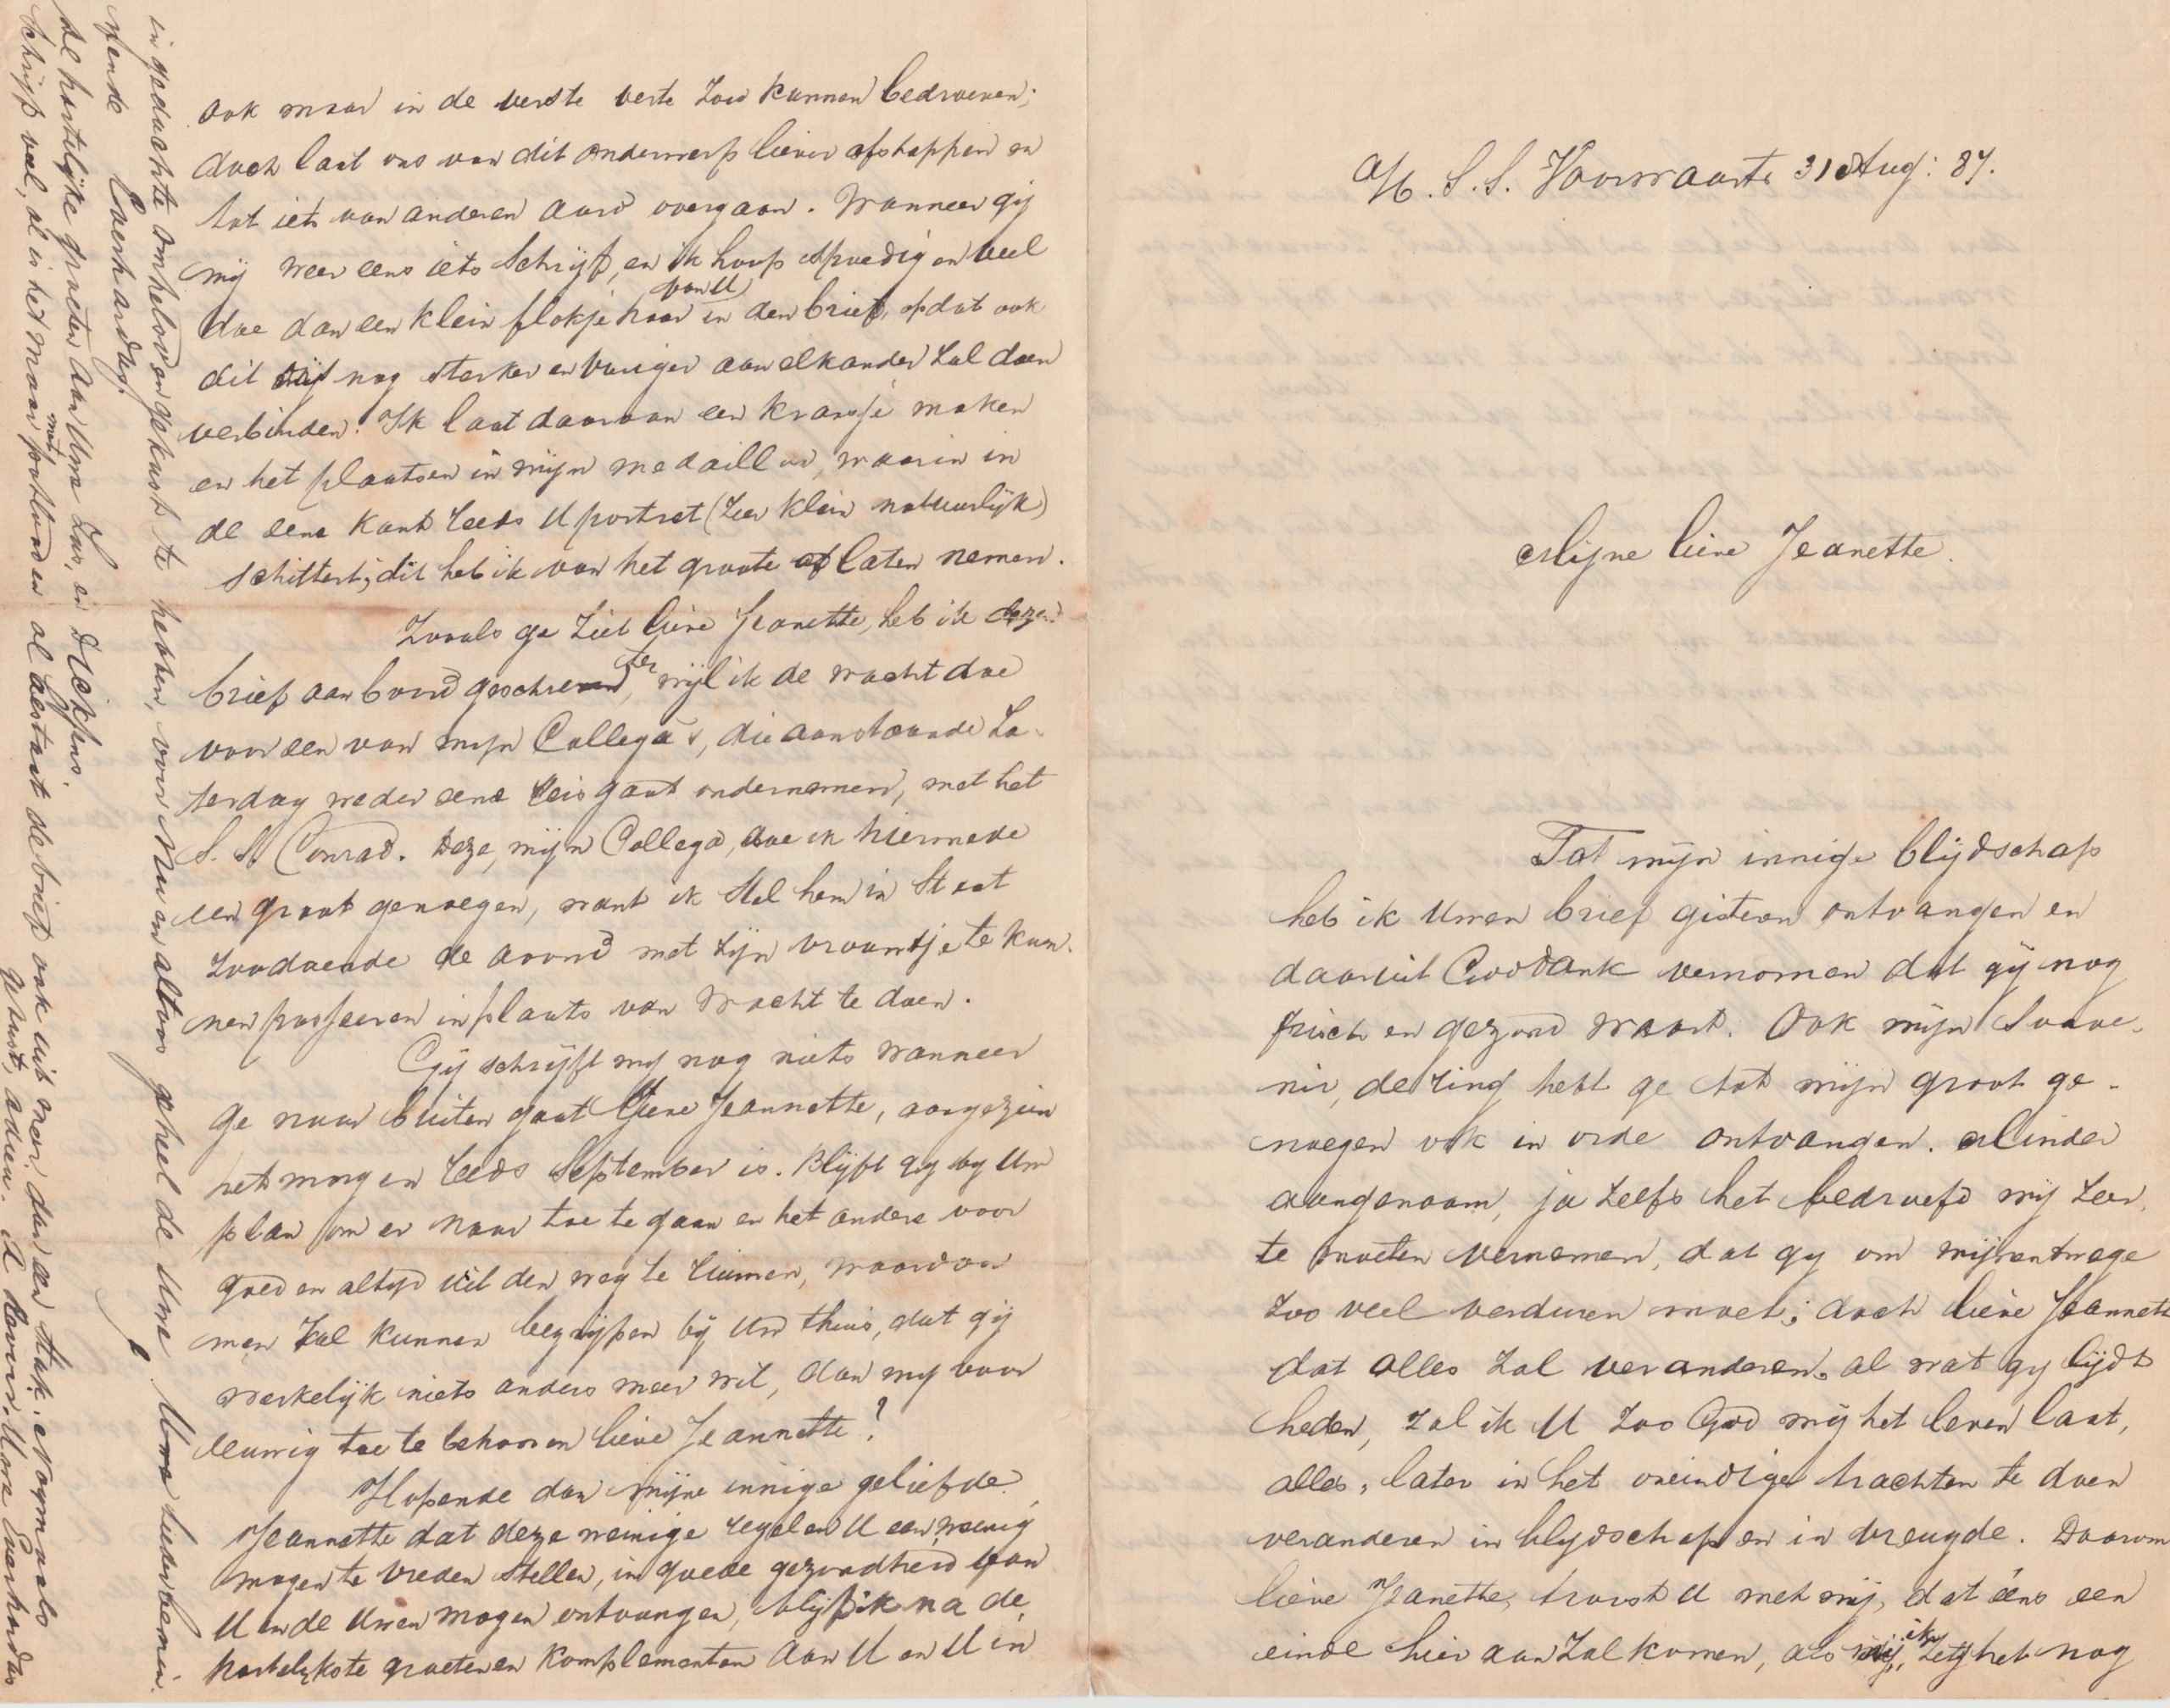 a/b. S.S. Voorwaarts 31 Aug: 87.
Mijne lieve Jeanette.
Tot mijn innige blijdschap
heb ik Uwen brief gisteren ontvangen en
daaruit Goddank vernomen dat gij nog
frisch en gezond waart. Ook mijn Souve-
nir, de ring hebt ge tot mijn groot ge-
noegen ook in orde ontvangen. Minder
aangenaam, ja zelfs het bedroefd mij zeer,
te moeten vernemen, dat gy om mijnentwege
zoo veel verduren moet; doch lieve Jeannette
dat alles zal veranderen. al wat gy lijdt
heden, zal ik U zoo God mij het leven laat,
alles, later in het oneindige trachten te doen
veranderen in blijdschap en in vreugde. Daarom
lieve Jeanette, troost U met mij, dat ééns een
einde hier aan zal komen, als ik het nog
ook maar in de verste verte zou kunnen bedroeven;
doch laat ons van dit onderwerp liever afstappen en
tot iets van anderen aard overgaan. Wanneer gij
mij weer eens iets schrijft, en ik hoop spoedig en veel
doe dan een klein flokje haar van U in den brief, opdat ook
dit nog sterker en vuriger aan elkander zal doen
verbinden. Ik laat daarvan een kransje maken
en het plaatsen in mijn medaillon, waarin in
de eene kant reeds U portret (zeer klein natuurlijk)
schittert; dit heb ik van het groote af laten nemen.
Zooals ge ziet lieve Jeanette, heb ik dezen
brief aan boord geschreven, terwijl ik de wacht doe
voor een van mijn Collega's, die aanstaande Za-
terdag weder eene reis gaat ondernemen, met het
S.S. Conrad. Deze, mijn Collega, doe ik hiermede
een groot genoegen, want ik stel hem in staat
zoodoende de avond met zijn vrouwtje te kun-
nen passeeren in plaats van wacht te doen.
Gij schrijft mij nog niets wanneer
ge naar buiten gaat lieve Jeannette, aangezien
het morgen reeds September is. Blijft gij by Uw
plan om er naar toe te gaan en het andere voor
goed en altyd uit den weg te ruimen, waarvan
men zal kunnen begrijpen bij Uw thuis, dat gij
werkelijk niets anders meer wil, dan my voor
eeuwig toe te behooren lieve Jeannette?
Hopende dan mijne innige geliefde
Jeannette dat deze weinige regelen U een weinig
mogen te vreden stellen, in goede gezondheid van
U en de Uwen mogen ontvangen, blijf ik na de
hartelykste groeten en komplementen aan U en U in
in gedachte omhelsd en gekust te hebben, voor Nu en altoos geheel de Uwe. Uwe liefhebbende
Everhardus.
de hartelijke groeten aan Uwe Zus, en
schrijf veel, al is het maar met potlood en al bestaat de brief ook uit meer dan een stuk. Nogmaals
gekust, adieu. Uwe Everhardus